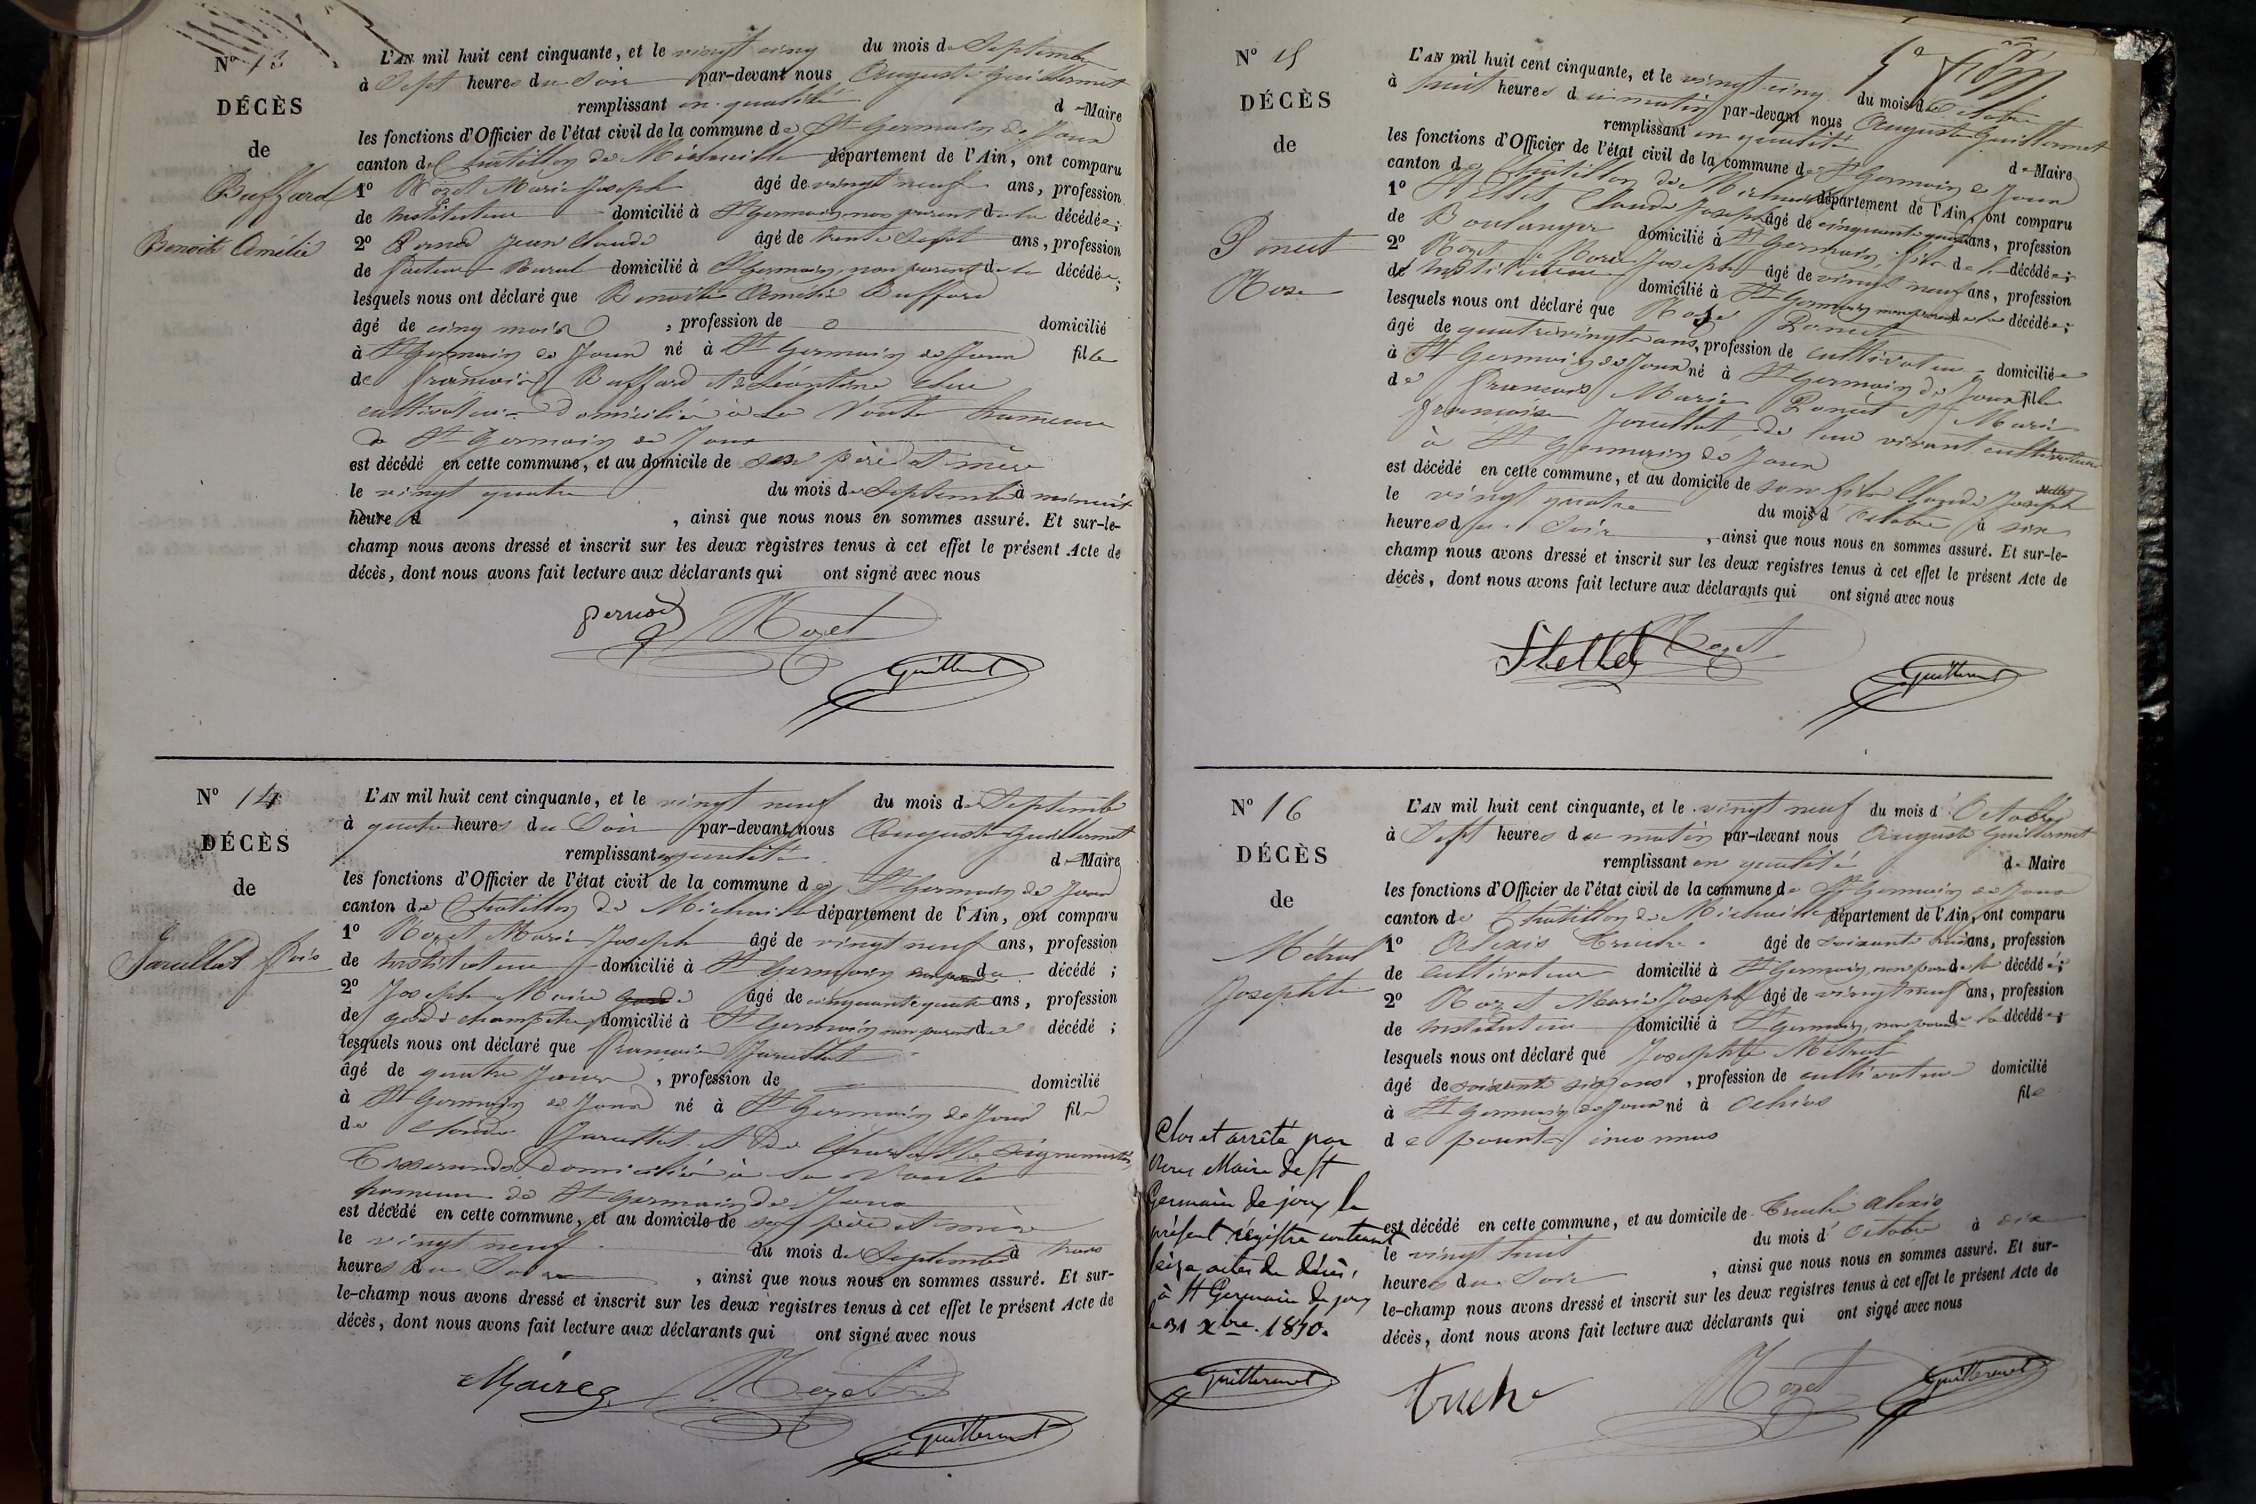 N° 13
DÉCÈS
de
Buffard
Benoite Amélie
L'AN mil huit cent cinquante, et le vingt cinq du mois de Septembre
à Sept heures du Soir par-devant nous Auguste Guillermet
remplissant en qualité de Maire
les fonctions d'Officier de l'état civil de la commune de St Germain de Joux
canton de Chatillon de Michaille département de l'Ain, ont comparu
1° Rozet Marie Joseph âgé de vingt neuf ans, profession
de Instituteur domicilié à St Germain non parent de la décédée;
2° Pernod Jean Claude âgé de trente Sept ans, profession
de facteur Rural domicilié à St Germain, non parent de la décédée;
lesquels nous ont déclaré que Benoite Amélie Buffard
âgé de cinq mois, profession de domicilié
à St Germain de Joux né à St Germain de Joux fille
de françois Buffard et de Léontine
cultivateurs domiciliés à La Voute hameau
de St Germain de Joux
est décédé en cette commune, et au domicile de ses père et mère
le vingt quatre du mois de Septembre à minuit
heure d , ainsi que nous nous en sommes assuré. Et sur-le-
champ nous avons dressé et inscrit sur les deux registres tenus à cet effet le présent Acte de
décès, dont nous avons fait lecture aux déclarants qui ont signé avec nous
pernod Rozet
Guillermet
N° 14
DÉCÈS
de
Jarullat fois
L'AN mil huit cent cinquante, et le vingt neuf du mois de Septembre
à quatre heures du Soir par-devant nous Auguste Guillermet
remplissant en qualité de Maire
les fonctions d'Officier de l'état civil de la commune de St Germain de Joux
canton de Chatillon de Michaille département de l'Ain, ont comparu
1° Rozet Marie Joseph âgé de vingt neuf ans, profession
de Instituteur domicilié à St Germain non parent du décédé;
2° Joseph Maire âgé de cinquante quatre ans, profession
de garde champêtre domicilié à St Germain non parent du décédé;
lesquels nous ont déclaré que françois Jarullat
âgé de quatre jours, profession de domicilié
à St Germain de Joux né à St Germain de Joux fils
de Claude Jarullat et de Charlotte
Tisserands domiciliés à La Voute
hameau de St Germain de Joux
est décédé en cette commune, et au domicile de ses père et mère
le vingt neuf du mois de Septembre à trois
heures du Soir , ainsi que nous nous en sommes assuré. Et sur-
le-champ nous avons dressé et inscrit sur les deux registres tenus à cet effet le présent Acte de
décès, dont nous avons fait lecture aux déclarants qui ont signé avec nous
Maire Rozet
Guillermet
N° 15
DÉCÈS
de
Poncet
Rose
L'AN mil huit cent cinquante, et le vingt cinq du mois d'Octobre
à huit heures du matin par-devant nous Auguste Guillermet
remplissant en qualité de Maire
les fonctions d'Officier de l'état civil de la commune de St Germain de Joux
canton de Chatillon de Michaille département de l'Ain, ont comparu
1° Claude Joseph âgé de cinquante quatre ans, profession
de Boulanger domicilié à St Germain, fils de la décédée;
2° Rozet Marie Joseph âgé de vingt neuf ans, profession
de Instituteur domicilié à St Germain non parent de la décédée;
lesquels nous ont déclaré que Rose Poncet
âgé de quatrevingts ans, profession de cultivateur domiciliée
à St Germain de Joux né à St Germain de Joux fille
de françois Marie Poncet et Marie
françoise Jouillat, de leur vivant cultivateurs
à St Germain de Joux
est décédé en cette commune, et au domicile de son fils Claude Joseph
le vingt quatre du mois d'Octobre à six
heures du Soir , ainsi que nous nous en sommes assuré. Et sur-le-
champ nous avons dressé et inscrit sur les deux registres tenus à cet effet le présent Acte de
décès, dont nous avons fait lecture aux déclarants qui ont signé avec nous
Rozet
Guillermet
N° 16
DÉCÈS
de
Métral
Josephte
L'AN mil huit cent cinquante, et le vingt neuf du mois d'Octobre
à Sept heures du matin par-devant nous Auguste Guillermet
remplissant en qualité de Maire
les fonctions d'Officier de l'état civil de la commune de St Germain de Joux
canton de Chatillon de Michaille département de l'Ain, ont comparu
1° Alexis Truche âgé de soixante huit ans, profession
de cultivateur domicilié à St Germain, non parent de la décédée;
2° Rozet Marie Joseph âgé de vingt neuf ans, profession
de Instituteur domicilié à St Germain, non parent de la décédée;
lesquels nous ont déclaré que Josephte Métral
âgé de soixante six ans, profession de cultivateur domicilié
à St Germain de Joux né à Echlos fille
de parents inconnus
est décédé en cette commune, et au domicile de Truche Alexis
le vingt huit du mois d'Octobre à dix
heures du Soir , ainsi que nous nous en sommes assuré. Et sur-
le-champ nous avons dressé et inscrit sur les deux registres tenus à cet effet le présent Acte de
décès, dont nous avons fait lecture aux déclarants qui ont signé avec nous
truche Rozet Guillermet
Clos et arrêté par
nous Maire de St
Germain de joux le
présent régistre contenant
seize actes de décès,
à St Germain de joux
le 31 Xbre 1850.
Guillermet